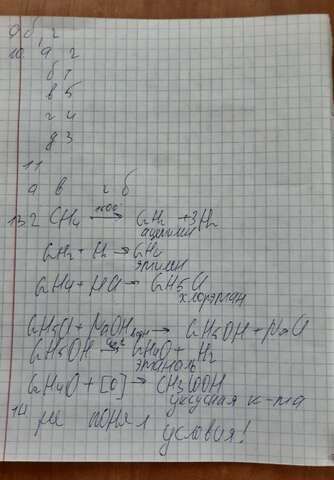 9 б, г
10. а 2
б 1
в 5
г 4
д 3
11
а в г б
13. 2 CH4 → C2H2 + 3H2
ацетилен
C2H2 + H2 → C2H4
этилен
C2H4 + HCl → C2H5Cl
хлорэтан
C2H5Cl + NaOH водн → C2H5OH + NaCl
C2H5OH → C2H4O + H2
этаналь
C2H4O + [O] → CH3COOH
уксусная к-та
14 не понял условия!